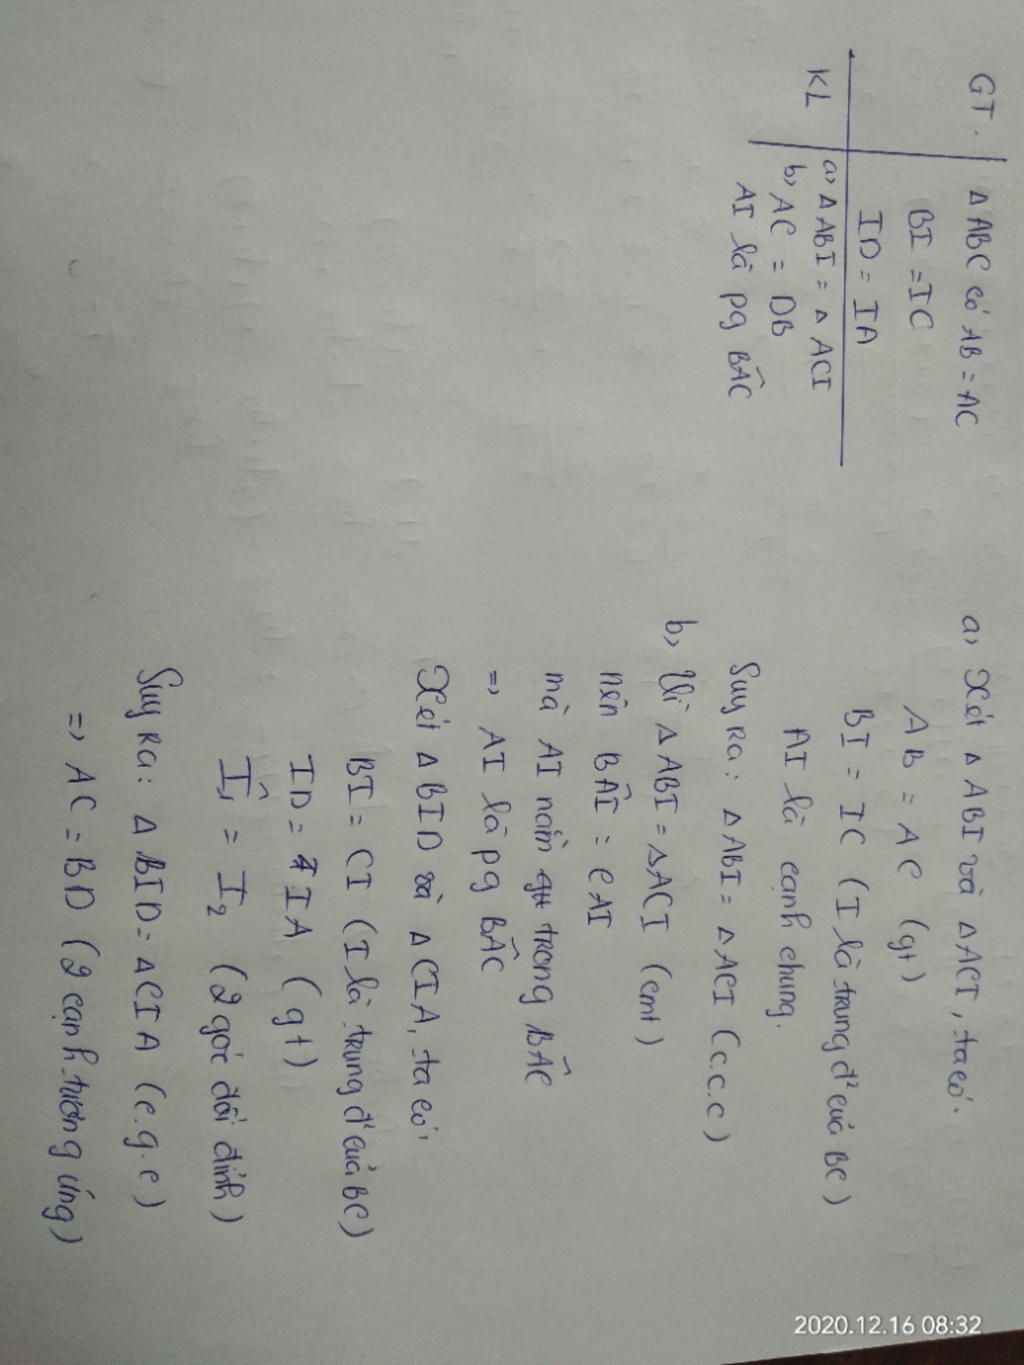 GT. Δ ABC có AB = AC
BI = IC
ID = IA
KL a, Δ ABI = Δ ACI
b, AC = DB
AI là pg BÂC
a, Xét Δ ABI và Δ ACI, ta có.
AB = AC (gt)
BI = IC (I là trung đ' của BC)
AI là cạnh chung.
Suy Ra: Δ ABI = Δ ACI (c.c.c)
b, Vì Δ ABI = Δ ACI (cmt)
nên BÂI = CAI
mà AI nằm trong BÂC
=> AI là pg BÂC
Xét Δ BID và Δ CIA, ta có,
BI = CI (I là trung đ' của BC)
ID = IA (gt)
Î₁ = I₂ (2 góc đối đỉnh)
Suy Ra: Δ BID = Δ CIA (c.g.c)
=> AC = BD (2 cạnh tương ứng)
2020.12.16 08:32